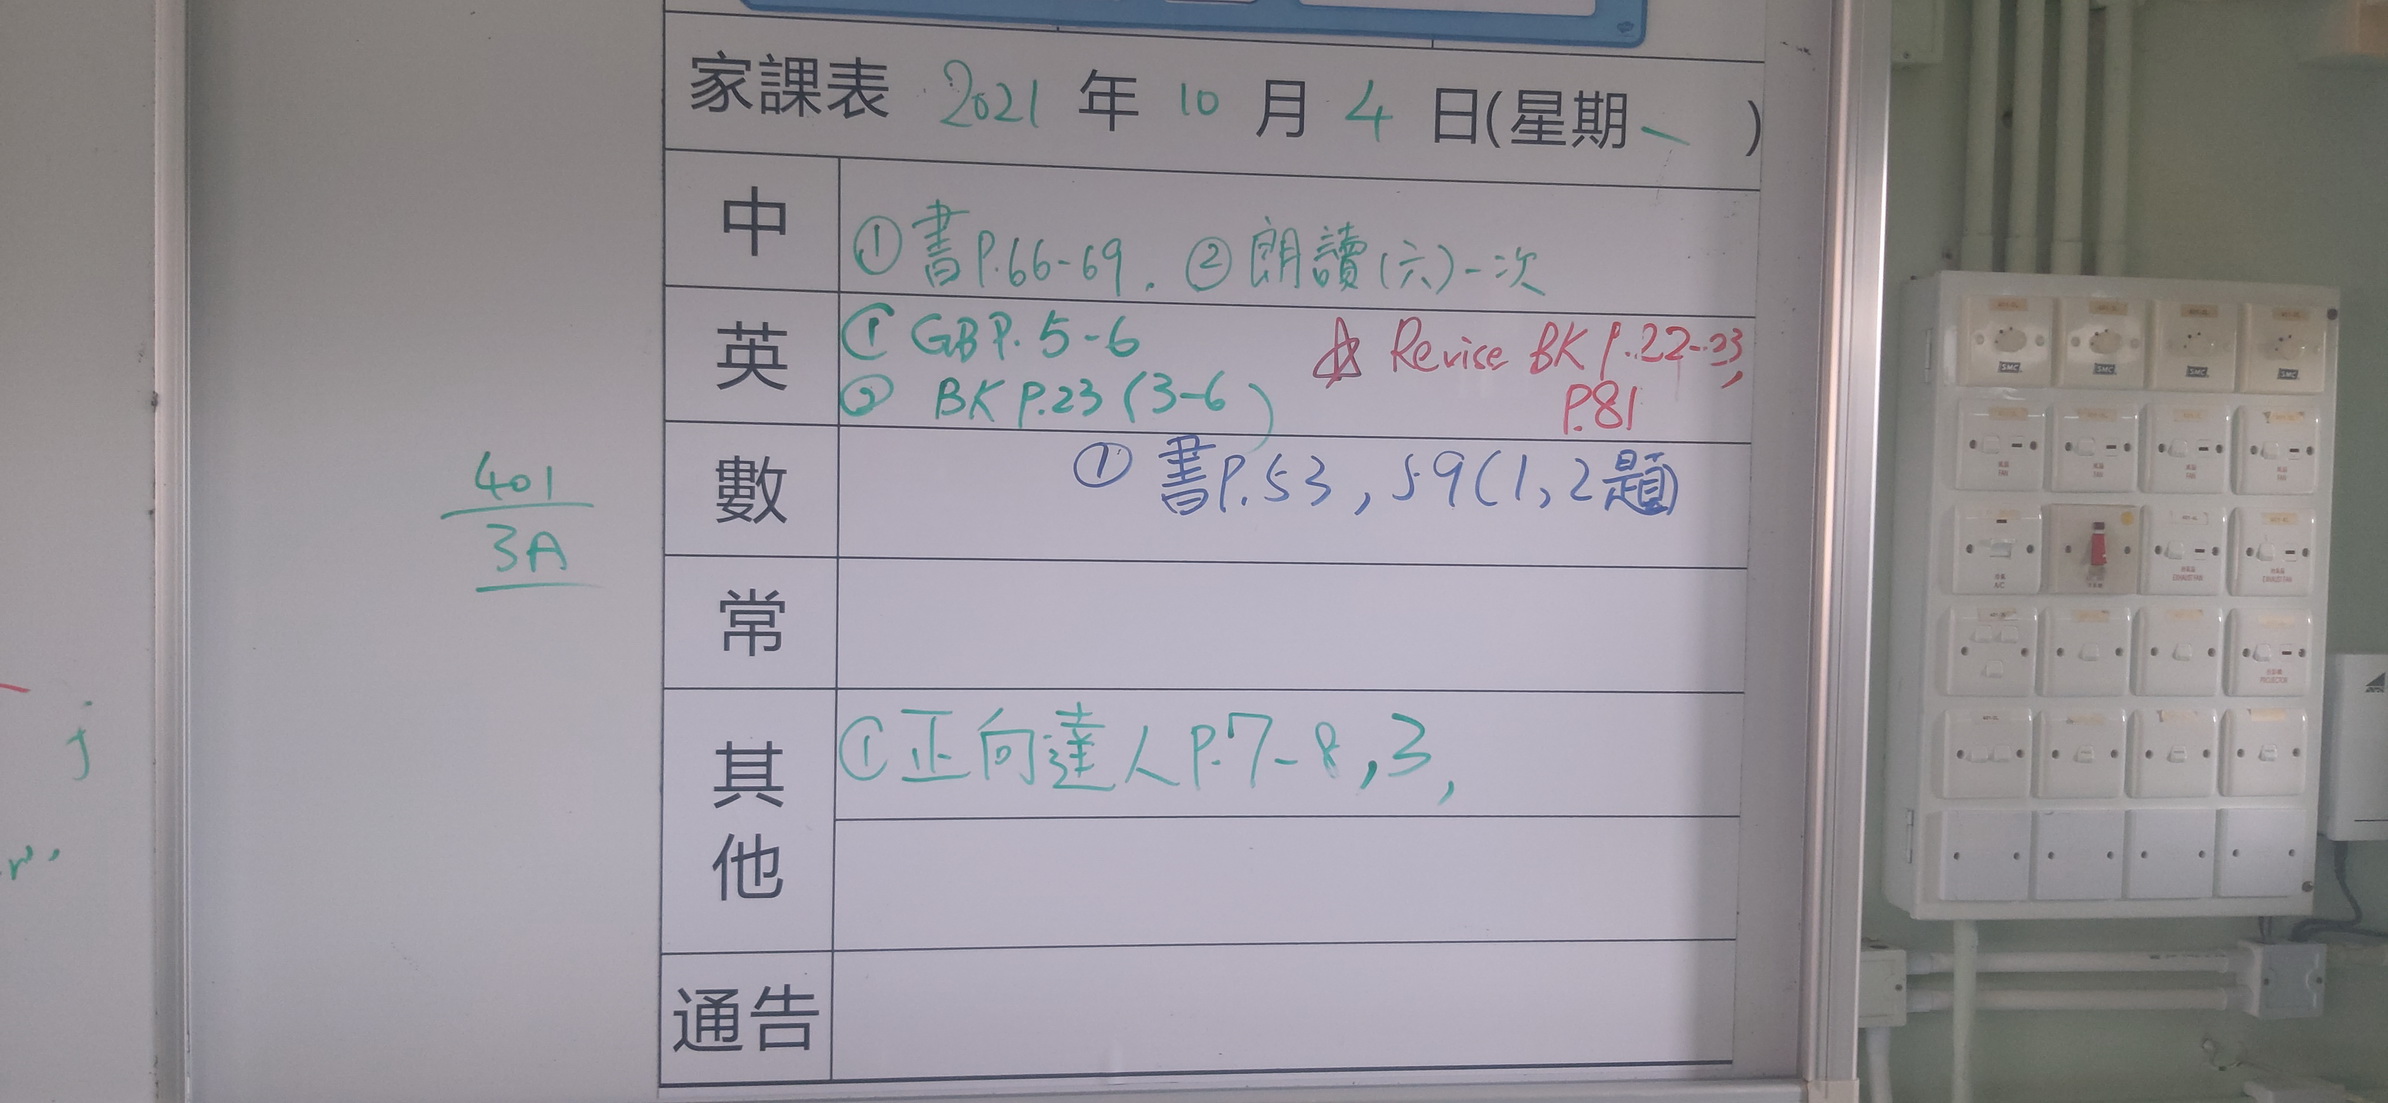 家課表 2021 年 10 月 4 日(星期一 )
中 ①書P.66-69. ②朗讀(六)一次
英 ① GB P. 5-6 ☆ Revise BK P.22-23,
② BK P.23 (3-6) P.81
數 ① 書P.53, 59(1, 2題)
常
其他 ①正向達人P.7-8,3,
通告
401
3A
j
SMC
SMC
SMC
SMC